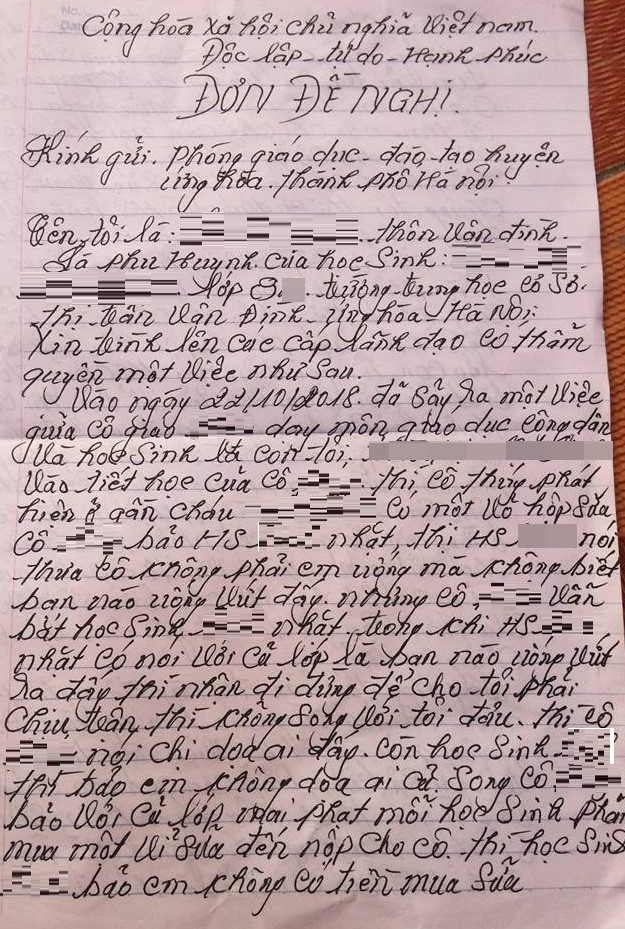 No.
Cộng hòa xã hội chủ nghĩa Việt nam.
Độc lập - tự do - Hạnh phúc
ĐƠN ĐỀ NGHỊ.
Kính gửi. phòng giáo dục - đào tạo huyện
ứng hòa. thành phố Hà nội.
Tên tôi là: thôn Vân đình.
Là phụ Huynh của học Sinh:
lớp 8 trường trung học cơ Sở.
thị trấn Vân Đình - ứng hòa - Hà Nội:
Xin trình lên các cấp lãnh đạo có thẩm
quyền một Việc như Sau.
Vào ngày 22/10/2018. đã Sảy ra một Việc
giữa cô giáo dạy môn giáo dục công dân
Và học Sinh là con tôi,
Vào tiết học của Cô thì cô thấy phát
hiện ở gần cháu Có một Vỏ hộp Sữa
Cô bảo HS nhặt, thì HS nói
thưa cô không phải em uống mà không biết
bạn nào uống Vứt đấy, nhưng cô Vẫn
bắt học Sinh nhặt. trong khi HS
nhặt có nói Với cả lớp là bạn nào uống Vứt
ra đấy thì nhận đi đừng để cho tôi phải
chịu trận thì không song Với tôi đâu. thì cô
nói chị dọa ai đấy. còn học Sinh
thì bảo em không dọa ai cả. Song cô
bảo Với cả lớp mai phạt mỗi học Sinh phải
mua một Vỉ Sữa đến nộp cho cô. thì học Sinh
bảo em không có tiền mua Sữa